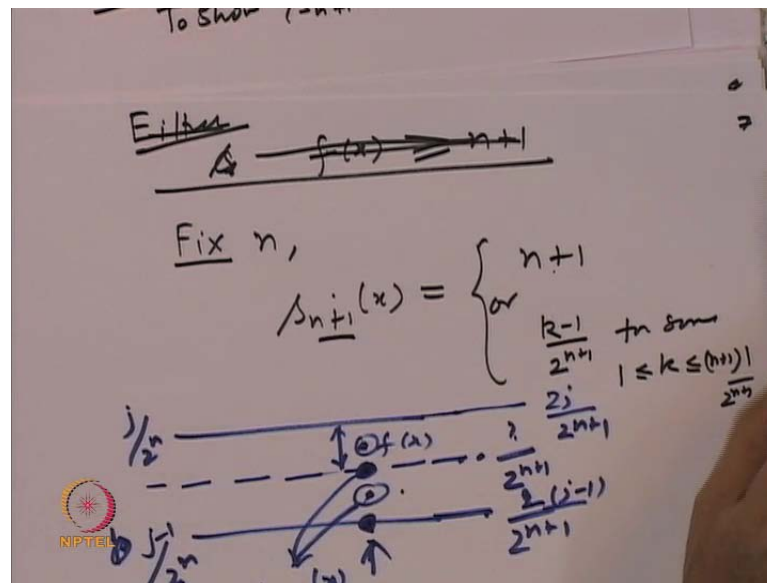 To Show
Either
s f(x) ≥ n+1
Fix n,
s_{n+1}(x) = { n+1
or
k-1/2^{n+1} for some
1 ≤ k ≤ (n+1)
2^{n+1}
j/2^n 2j/2^{n+1}
f(x)
?/2^{n+1}
j-1/2^n 2(j-1)/2^{n+1}
(x)
NPTEL